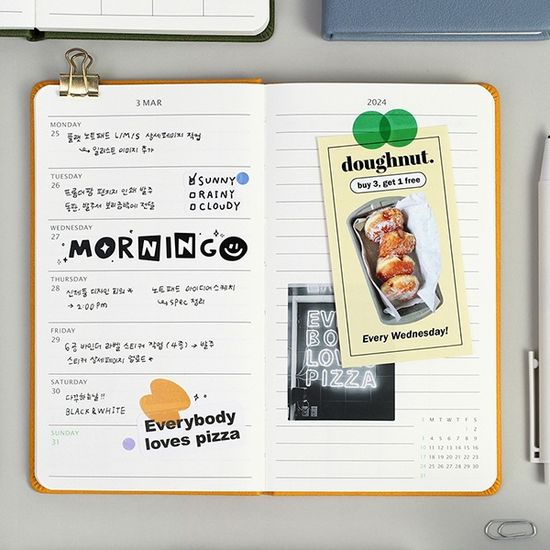 3 MAR
MONDAY
25
플랫 노트패드 L/M/S 상세페이지 작업
↳ 일러스트 이미지 추가
TUESDAY
26
프롬더팜 편지지 인쇄 발주
목판, 발주서 보리출력에 전달
✓ SUNNY
RAINY
CLOUDY
WEDNESDAY
27
MORNING
THURSDAY
28
신제품 디자인 회의
→ 2:00 PM
노트패드 아이디어 스케치
↳ SPEC 정리
FRIDAY
29
6공 바인더 라벨 스티커 작업 (4종) → 발주
스티커 상세페이지 업로드
SATURDAY
30
BLACK & WHITE
Everybody
loves pizza
SUNDAY
31
2024
doughnut.
buy 3, get 1 free
Every Wednesday!
EVE
BO
LOVE
PIZZA
S M T W T F S
1 2
3 4 5 6 7 8 9
10 11 12 13 14 15 16
17 18 19 20 21 22 23
24 25 26 27 28 29 30
31